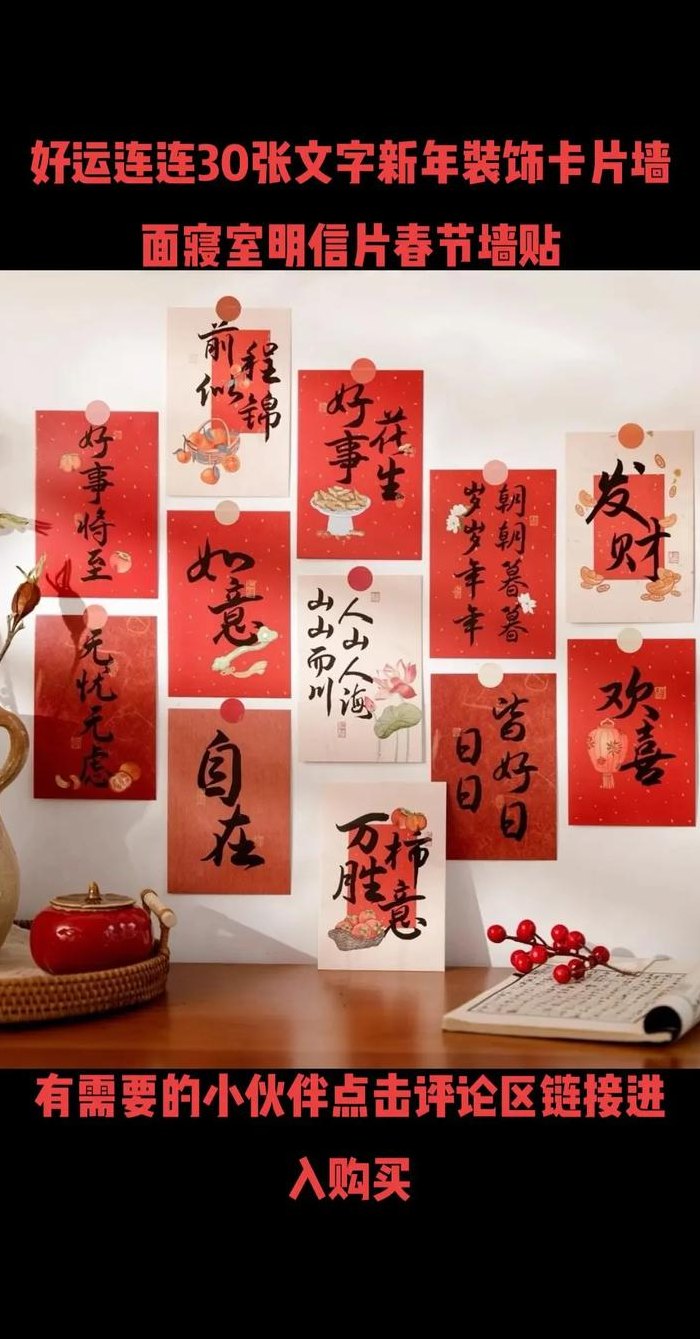 好运连连30张文字新年装饰卡片墙
面寝室明信片春节墙贴
前程
似锦
好事
花生
好事将至
发财
朝朝暮暮
岁岁年年
如意
人山人海
山山而川
无忧无虑
欢喜
日日
皆好日
自在
万柿
胜意
有需要的小伙伴点击评论区链接进
入购买